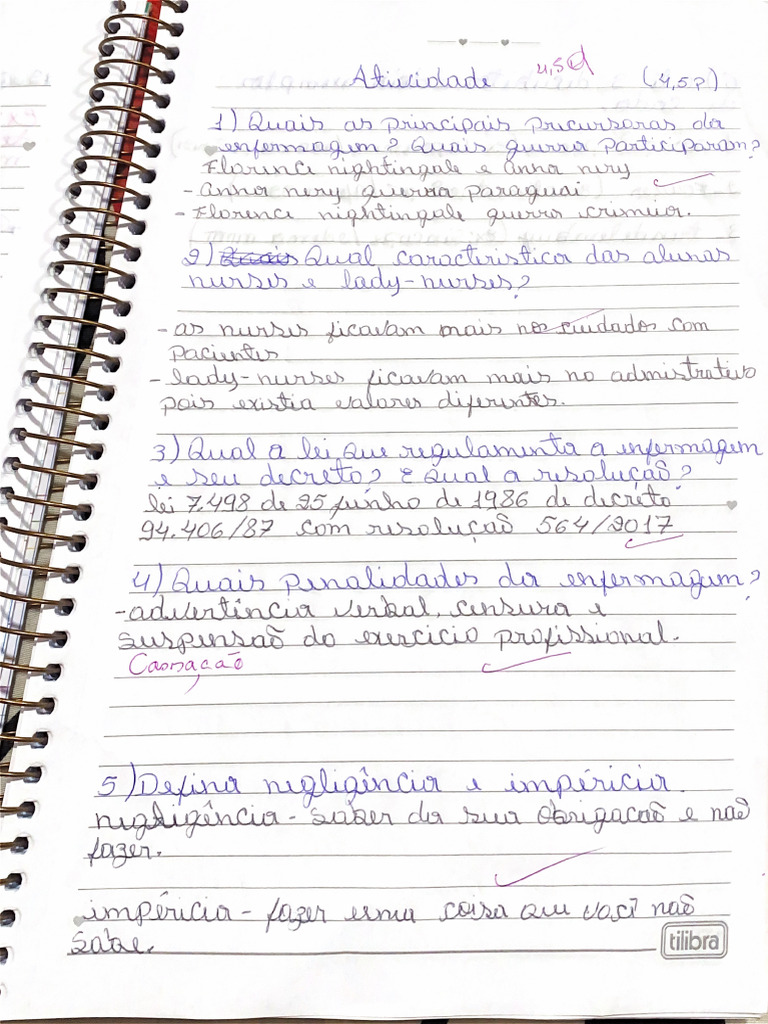 4,5
Atividade (4,5 p)
1) Quais as principais precursoras da
enfermagem? Quais guerra participaram?
Florence nightingale e anna nery
- anna nery guerra paraguai
- Florence nightingale guerra crimeia.
2) Quais Qual caracteristica das alunas
nurses e lady-nurses?
- as nurses ficavam mais nos cuidados com
pacientes
- lady-nurses ficavam mais no admistrativo
pois existia valores diferentes.
3) Qual a lei que regulamenta a enfermagem
e seu decreto? E qual a resolução?
lei 7.498 de 25 junho de 1986 de decreto
94.406/87 com resolução 564/2017
4) Quais penalidades da enfermagem?
- advertência verbal, censura e
suspensão do exercicio profissional.
Cassação
5) Defina negligência e impéricia.
negligência - saber da sua obrigacaõ e não
fazer.
impéricia - fazer uma coisa que você não
sabe.
tilibra